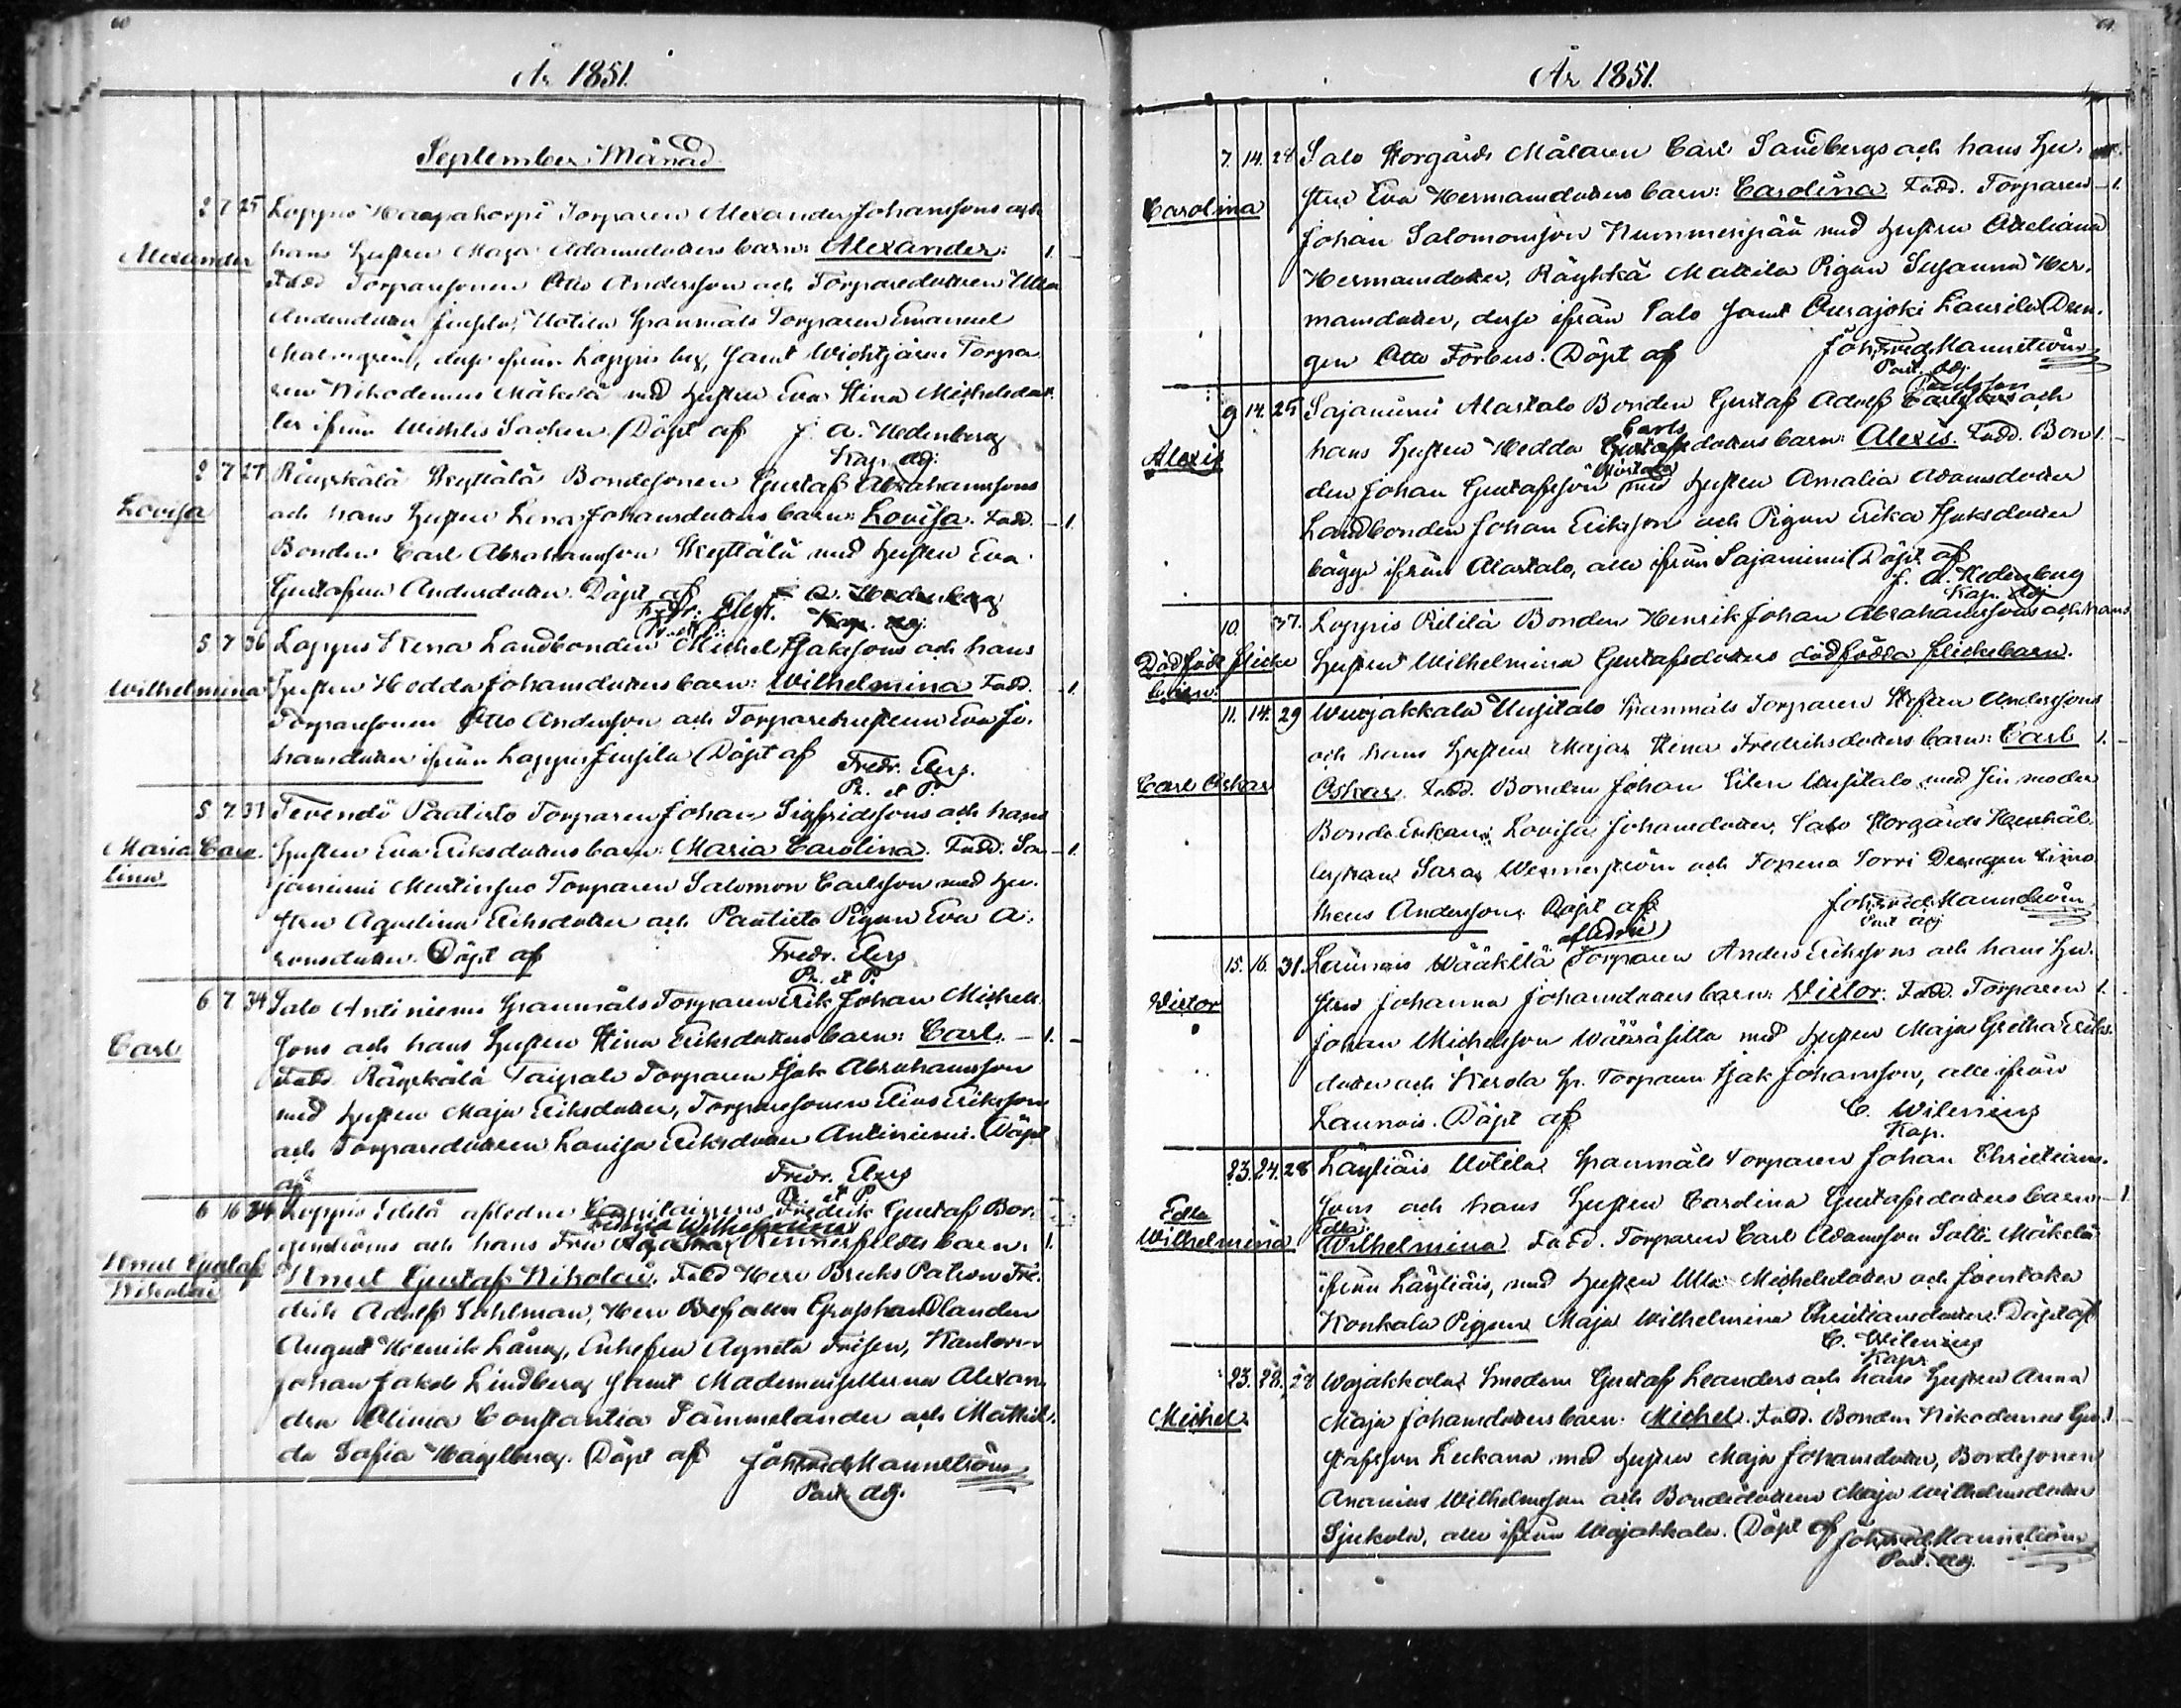 60
År 1851.
September Månad
2 7 25 Loppis Haapakorpi Torparen Alexander Johanssons och
Alexander hans hustru Maja Adamsdotters barn: Alexander: 1.
Fadd. Torparesonen Otto Andersson och Torparedottren Ulla
Andersdotter Uotila Spanmåls Torparen Emanuel
Malmgren, ifrån Loppis by, samt Wichtjärvi Torpa
ren Nikodemus Mäkelä med hustru Eva Stina Michelsdot
ter ifrån Wichtis Socken. Döpt af J. A. Hedenberg
Kap. adj.
2 7 27 Räyskälä Kyttälä Bondesonen Gustaf Abrahamssons
Lovisa och hans hustru Lena Johansdotters barn: Lovisa. Fadd. 1.
Bonden Carl Abrahamsson Kyttälä med hustru Eva
Andersdotter. Döpt af J. A. Hedenberg
Fredr. Elers. Kap. adj.
Pr. et P.
5 7 36 Loppis Landbonden Michel Isakssons och hans
Wilhelmina hustru Hedda Johansdotters barn: Wilhelmina Fadd. 1.
Torparesonen Otto Andersson och Torparehustrun Eva Jo-
hansdotter ifrån Loppis Döpt af Fredr. Elers.
Pr. et P.
5 7 31 Tevendö Pautisto Torparen Johan Sigfridssons och hans
Maria Caro- hustru Eva Eriksdotters barn: Maria Carolina. Fadd. Sa- 1.
lina janiemi Torparen Salomon Carlsson med hu-
stru Aqvelina Eriksdotter och Pautisto Pigan Eva A-
ronsdotter. Döpt af Fredr. Elers
Pr. et P.
6 7 34 Salo Antiniemi Spannmåls Torparen Erik Johan Michels-
Carl sons och hans hustru Stina Eriksdotters barn: Carl. 1.
Fadd. Räyskälä Taipale Torparen Isak Abrahamsson
med hustru Maja Eriksdotter, Torparesonen Elias Eriksson
och Torparedottren Lovisa Eriksdotter Antiniemi. Döpt
af Fredr. Elers
Pr. et P.
6 16 34 Loppis afledne Capitainens Fredrik Gustaf Bor-
Fredrika Wilhelmina
genströms och hans Fru Rennerfeldts barn. 1.
Knut Gustaf Knut Gustaf Nikolai. Fadd Herr Bruks Patron Fre-
Nikolai drik Adolf Sohlman, Herr Grosshandlanden
August Henrik Lång, Enkefru Agneta Frisen, Kantorn
Johan Jakob Lindberg samt Mademoisellerna Alexan
dra Olivia Constantia Tammelander och Mathil-
da Sofia Hagelberg. Döpt af Joh. Fred. Mannström
Past. adj.
61
År 1851.
7. 14. 28 Salo Storgårds Målaren Carl Sandbergs och hans hu-
Carolina stru Eva Hermansdotters barn: Carolina Fadd. Torparen 1.
Johan Salomonsson Nummenpää med hustru
Hermansdotter, Räyhkä Mattila Pigan Susanna Her-
mansdotter, desse ifrån Salo samt Ourajoki Laurila Drän-
gen Otto Forbus. Döpt af Joh. Fred. Mannström
Past. adj.
Carlsson
9 14. 25 Sajaniemi Alastalo Bonden Gustaf Adolf och
Carls
Alexis hans hustru Hedda Gustafsdotters barn: Alexis. Fadd. Bon 1.
den Johan Gustafsson med hustru Amalia Adamsdotter
Landbonden Johan Eriksson och Pigan Erika Isaksdotter
bägge ifrån Alastalo, alla ifrån Sajaniemi Döpt af
J. A. Hedenberg
Kap. adj.
10. 37. Loppis Pililä Bonden Henrik Johan Abrahamssons och hans
Dödfödt flicke hustru Wilhelmina Gustafsdotters dödfödda flickebarn.
barn.
11. 14. 29 Wuojakkala Uusitalo Spanmåls Torparen Stefan Anderssons
och hans hustru Maja Stina Fredriksdotters barn: Carl 1.
Carl Oskar Oskar. Fadd. Bonden Johan Uusitalo med sin moder
Bonde Enkan Lovisa Johansdotter, Salo Storgårds
Sara Wennerström och Topeno Torri Drengen Timo
theus Andersson. Döpt af Joh. Fred. Mannström
Past adj
afledne
15. 16. 31. Launois Wääkilä Torparen Anders Erikssons och hans hu-
Victor stru Johanna Johansdotters barn: Victor. Fadd. Torparen 1.
Johan Michelsson Wääräsilta med hustru Maja Gretha Eriks-
dotter och Kerola Sp. Torparen Isak Johansson, alle ifrån
Launois. Döpt af C. Wilenius
Kap.
23. 24. 28 Läyliäis Uotila Spanmåls Torparen Johan Christians-
sons och hans hustru Carolina Gustafsdotters barn 1.
Edla Edla
Wilhelmina Wilhelmina Fadd. Torparen Carl Adamsson Mäkelä
ifrån Läyliäis, med hustru Ulla Michelsdotter och
Konkala Pigan Maja Wilhelmina Christiansdotter. Döpt af
C. Wilenius
Kapn
23. 28. 28 Wojakkala Smeden Gustaf Leanders och hans hustru Anna
Michel Maja Johansdotters barn: Michel. Fadd. Bonden Nikodemus Gu- 1
stafsson med hustru Maja Johansdotter, Bondesonen
Ananias Wilhelmsson och Bondedottren Maja Wilhelmsdotter
alla ifrån Wojakkala. Döpt af Joh. Fred. Mannström
Past. adj.